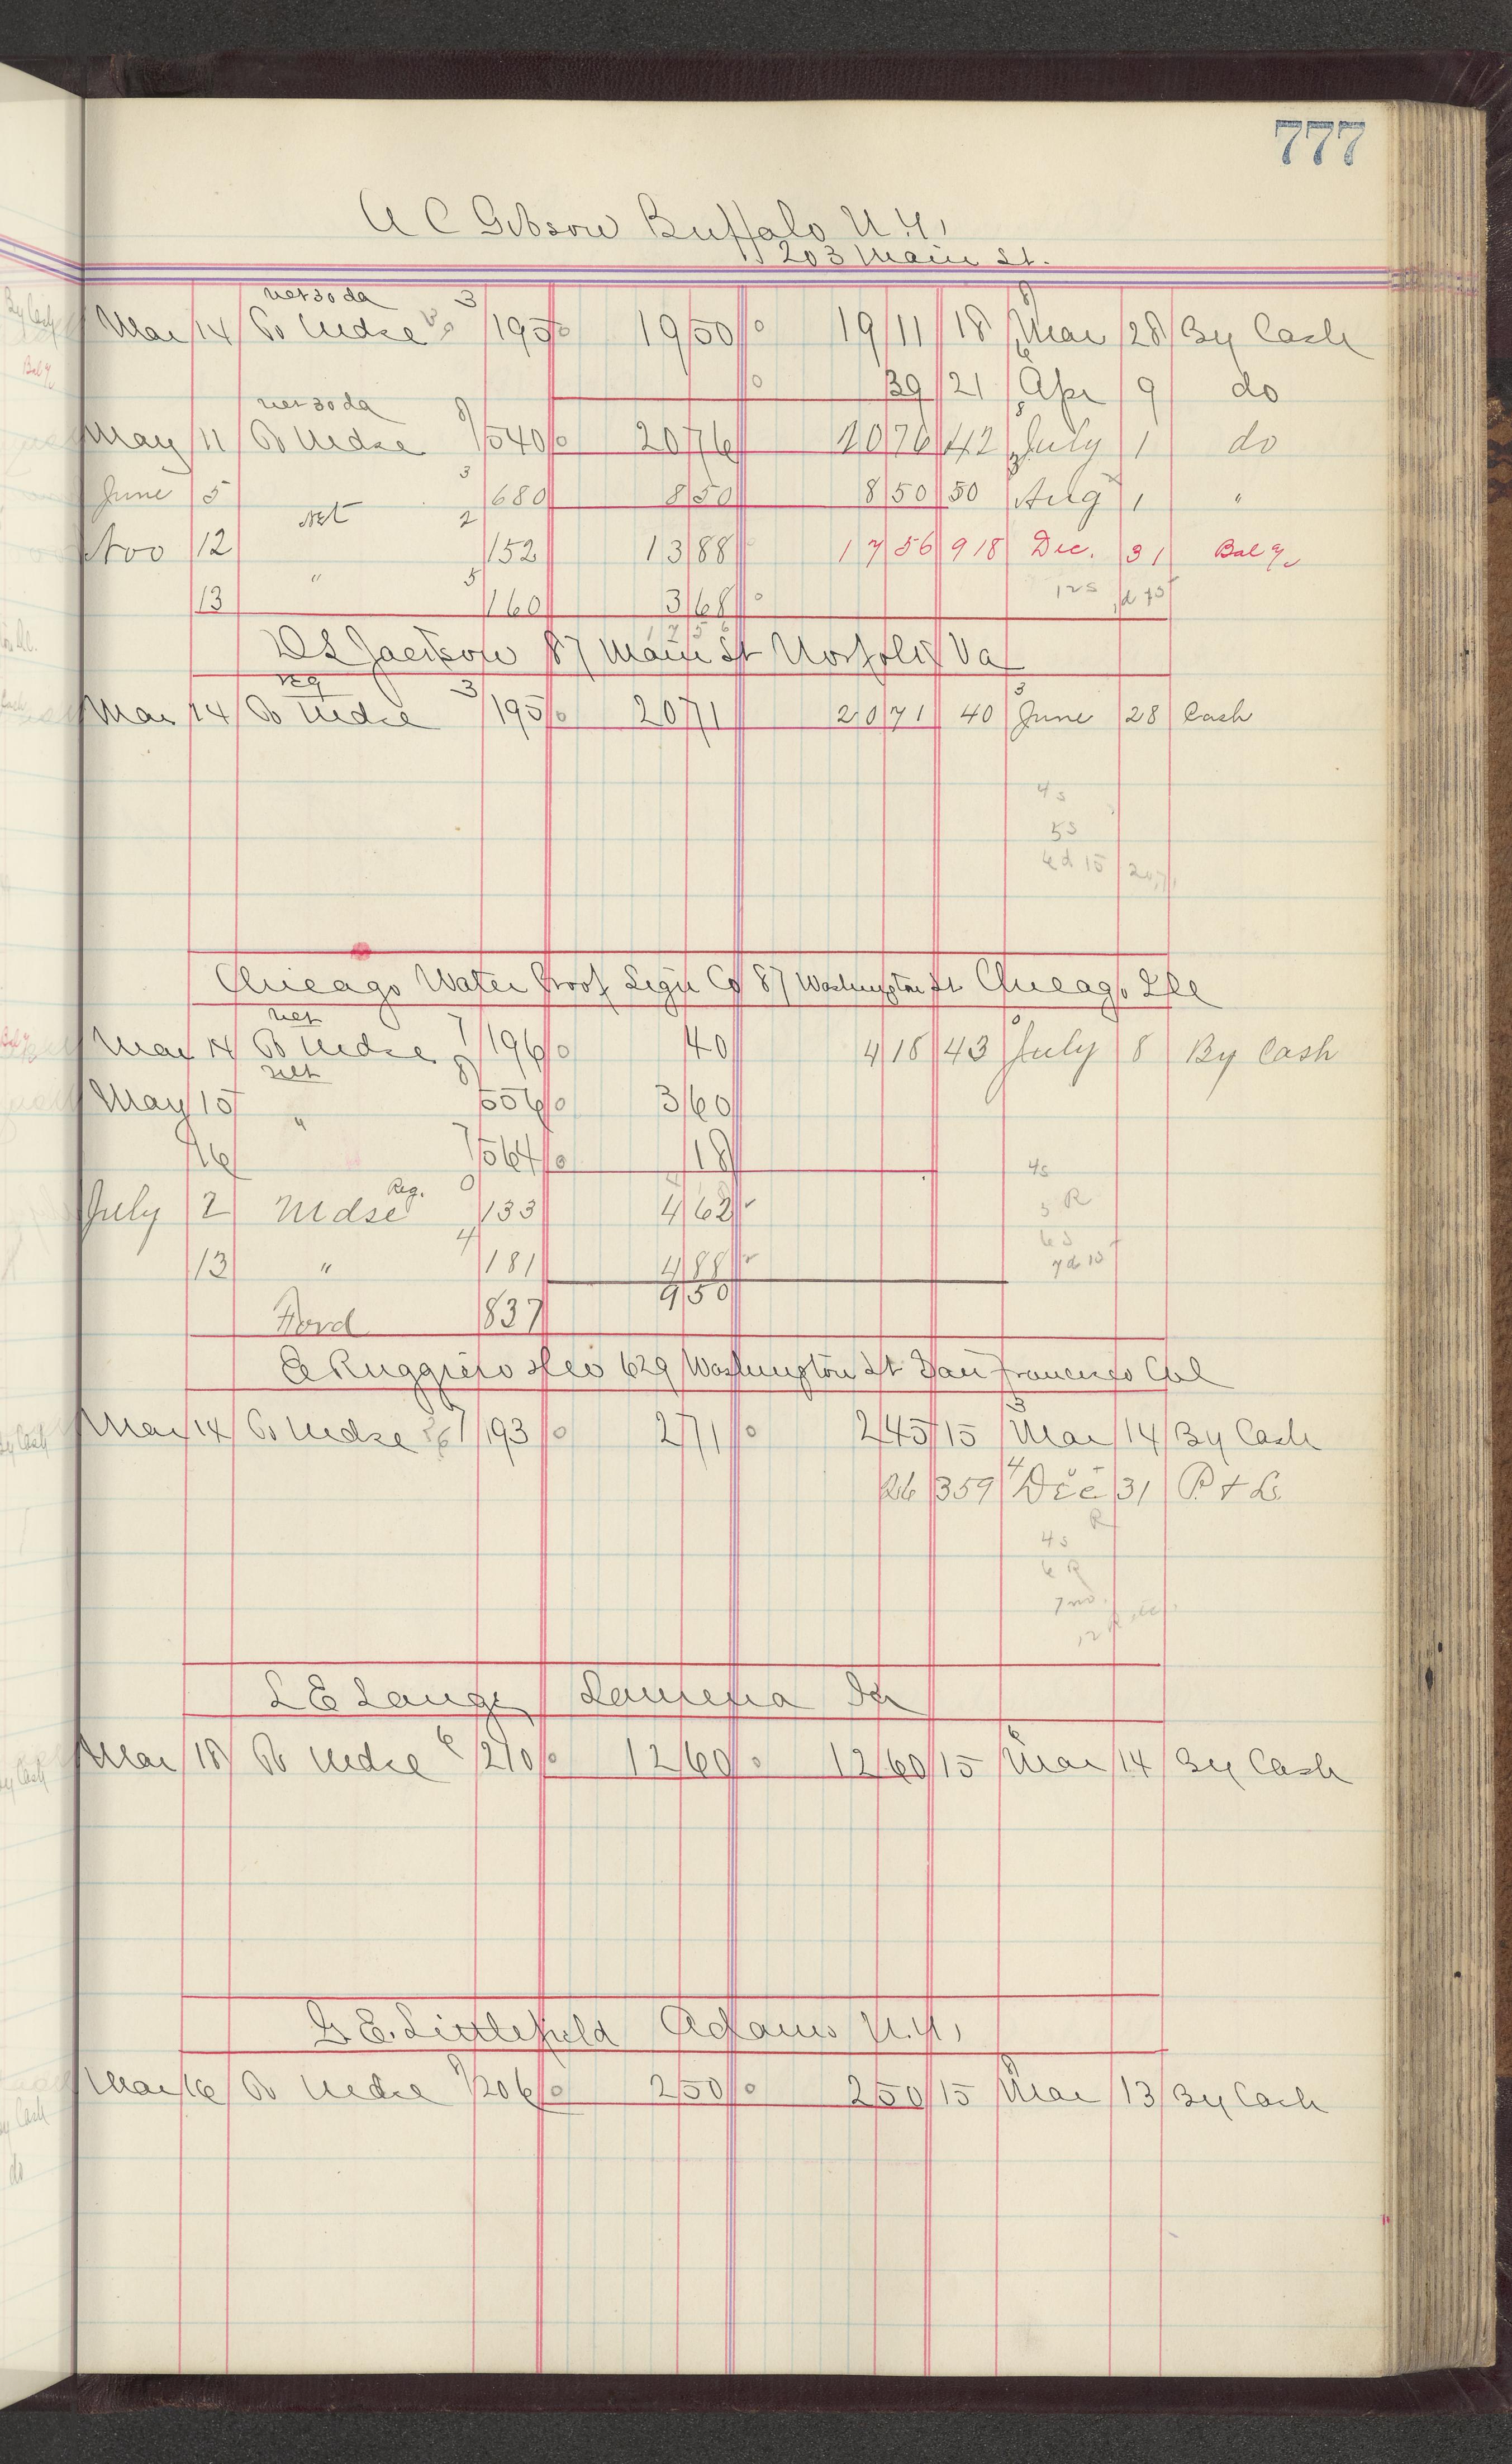 777
A C Gibson Buffalo N.Y.
203 Main St.
net 30 da
Mar 14 To Mdse 3/195 19 50 19 11 18 Mar 28 By Cash
39 21 Apr 9 do
net 30 da
May 11 To Mdse 8/540 20 76 20 76 42 July 1 do
June 5 3/680 8 50 8 50 50 Aug 1 "
Nov 12 Net 2/152 13 88 17 56 918 Dec. 31 Bal
13 " 5/160 3 68 12s
17 56
D S Jackson 87 Main St Norfolk Va
reg
Mar 14 To Mdse 3/195 20 71 20 71 40 June 28 Cash
4s
5s
6d 15 20.71
Chicago Water Proof Sign Co 87 Washington St Chicago Ill
net
Mar 14 To Mdse 7/196 40 4 18 43 July 8 By Cash
net
May 15 " 8/556 3 60
16 7/564 18
4s
July 2 Mdse Reg. 0/133 4 62
5 R
6 s
13 " 4/181 4 88
7d 15
9 50
Ford 837
E Ruggiero & Co 629 Washington St San Francisco Cal
Mar 14 To Mdse 7/193 2 71 2 45 15 Mar 14 By Cash
26 359 Dec 31 P & L
R
4s
6 R
7 no.
12
L E Lange Lamena Ia
Mar 18 To Mdse 6/210 12 60 12 60 15 Mar 14 By Cash
G. E. Littlefield Adams N.Y.
Mar 16 To Mdse 9/206 2 50 2 50 15 Mar 13 By Cash